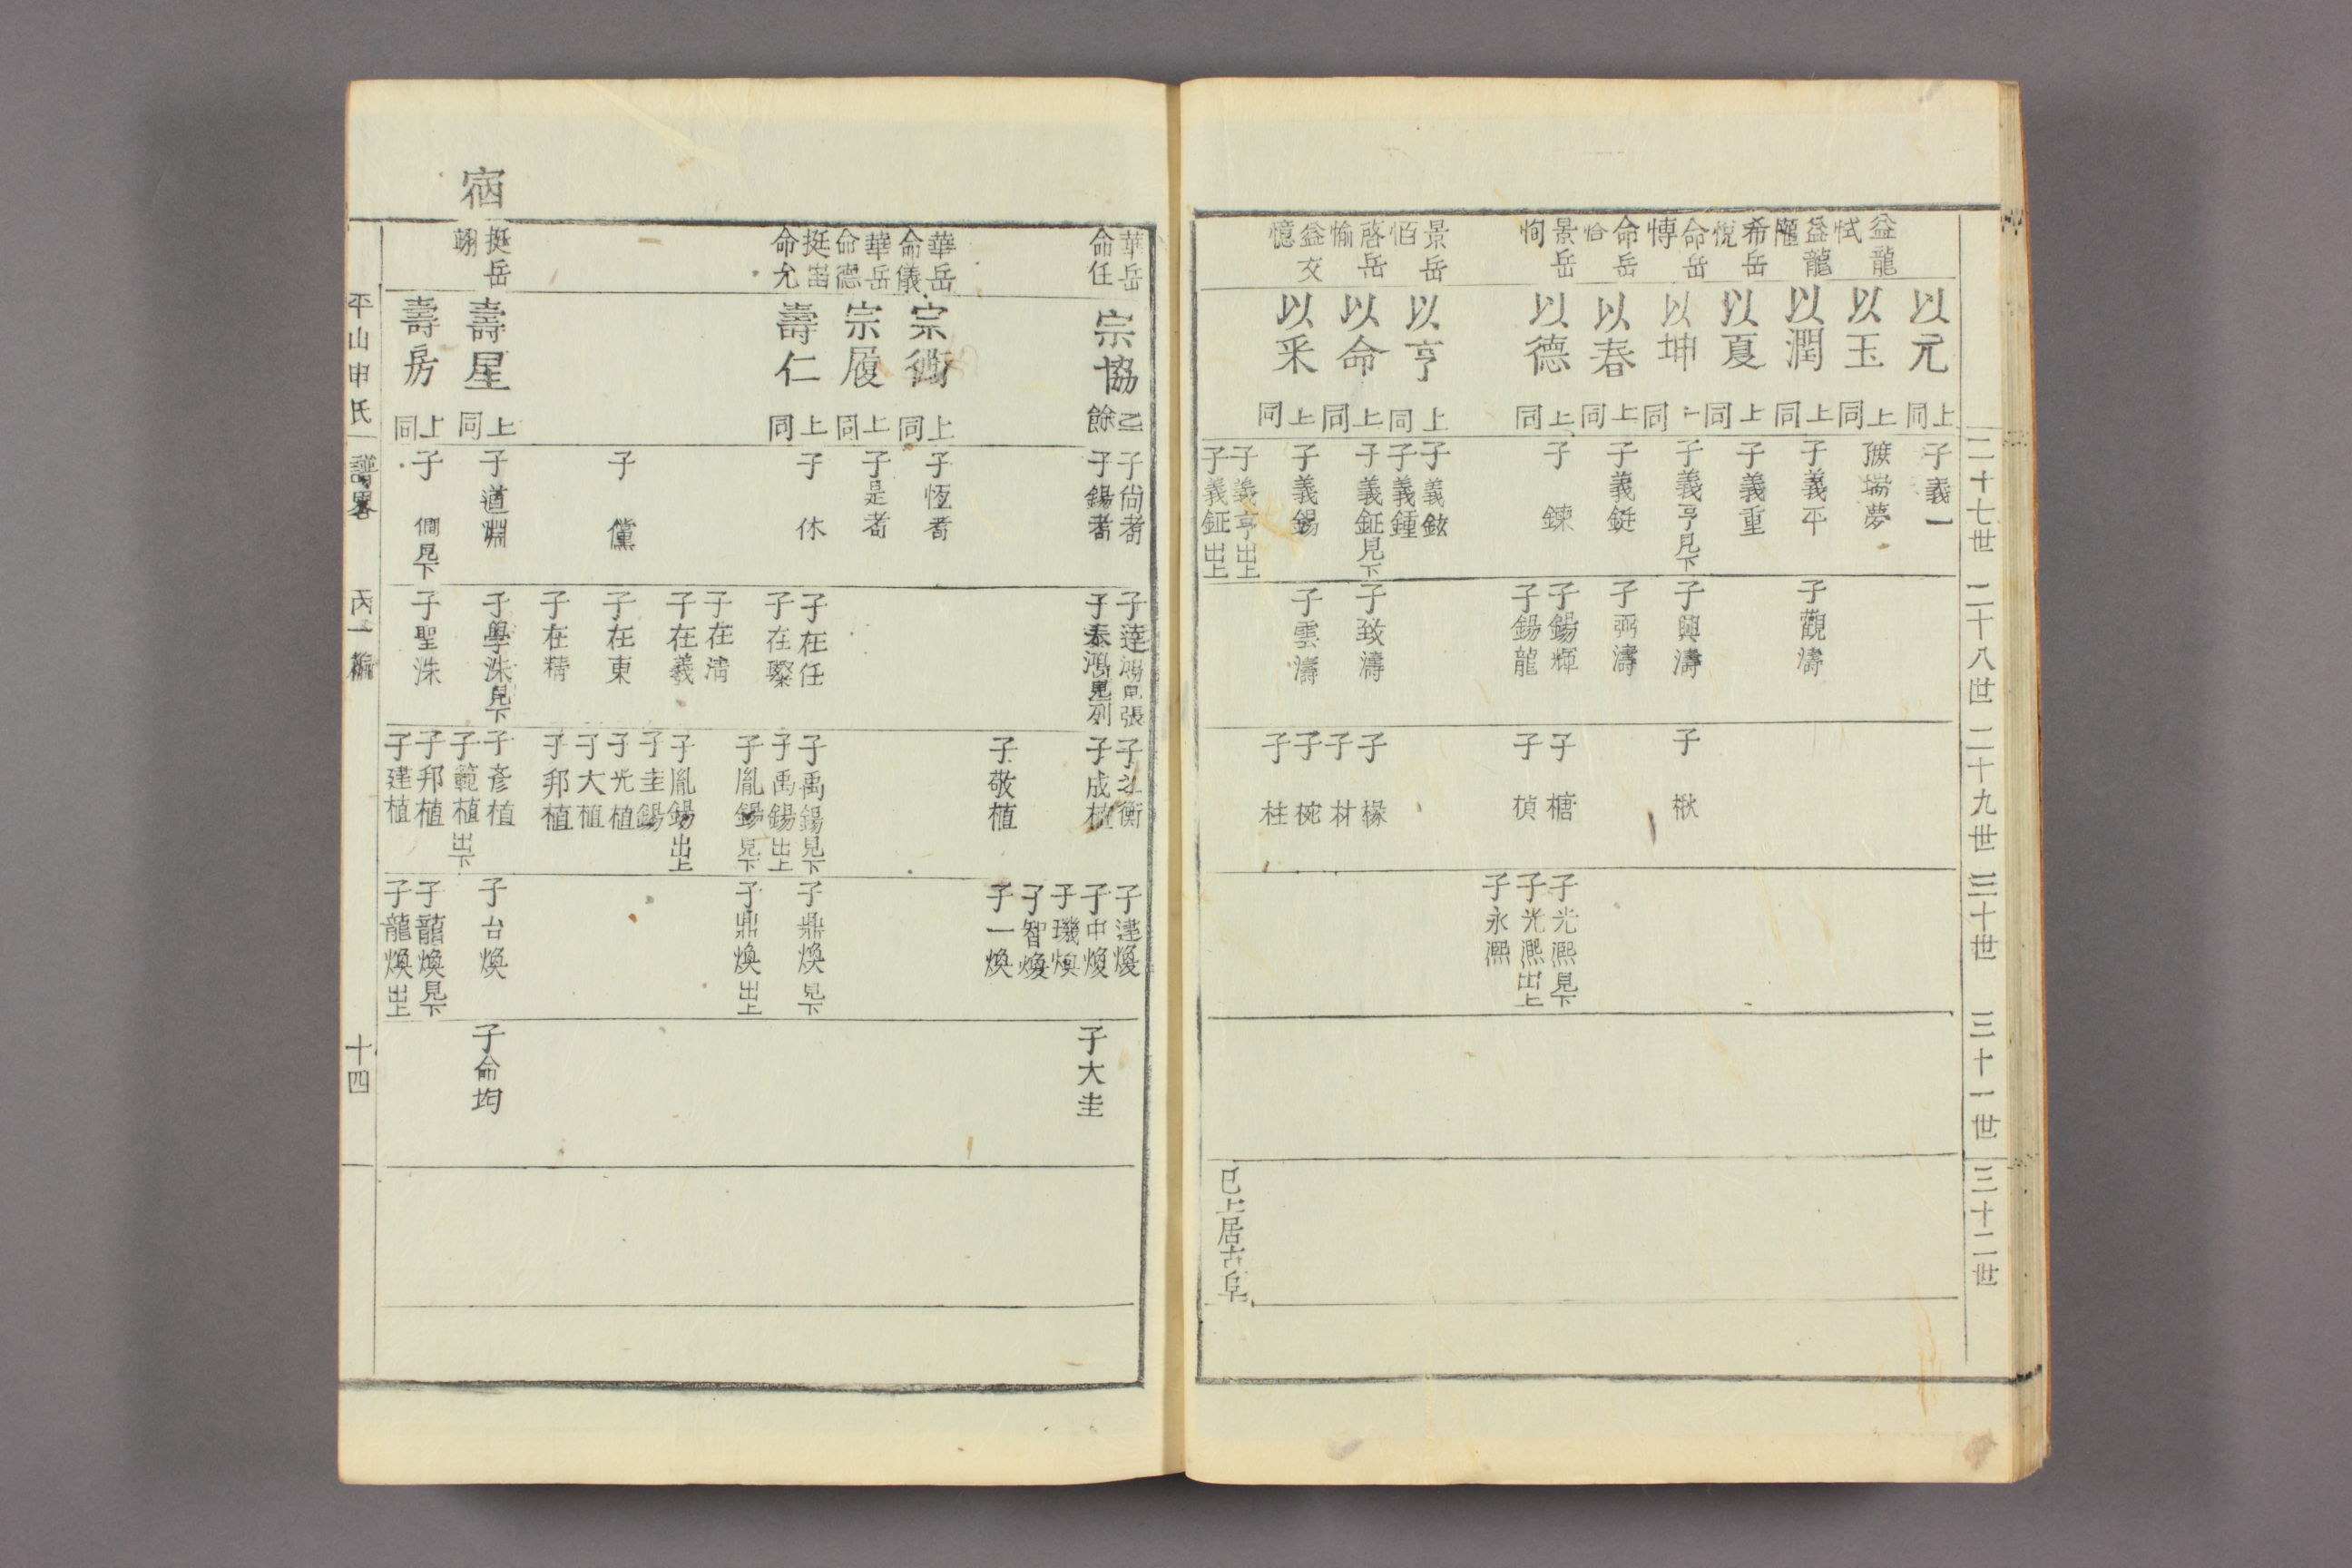 二十七世
二十八世
二十九世
三十世
三十一世
三十二世
益龍
恜
益龍
㦜
希岳
悅
命岳
愽
命岳
恰
景岳
恂
景岳
佰
啓岳
愉
益文
憶
以元
上同
以玉
上同
以潤
上同
以夏
上同
以坤
上同
以春
上同
以德
上同
以亨
上同
以命
上同
以采
上同
子義一
瑞夢
子義平
子義重
子義亨見下
子義鋌
子鍊
子義鉉
子義鍾
子義鉦見下
子義錫
子義亨出上
子義鉦出上
子觀濤
子興濤
子弼濤
子錫輝
子錫龍
子致濤
子雲濤
子楸
子榶
子楨
子椽
子材
子椀
子桂
子光凞見下
子光凞出上
子永凞
已上居古阜
華岳
命任
華岳
命儀
華岳
命德
挺岳
命允
宿
挺岳
翊
宗協
乙餘
宗衡
上同
宗履
上同
壽仁
上同
壽星
上同
壽房
上同
子尙耉
子錫耉
子恆耉
子是耉
子休
子儻
子道淵
子僴見下
子達鴻見張
子泰鴻見列
子在任
子在璨
子在淸
子在羲
子在東
子在精
子學洙見下
子聖洙
子成植
子敬植
子禹錫見下
子禹錫出上
子胤錫見下
子胤錫出上
子圭錫
子光植
子大植
子邦植
子彥植
子範植出下
子邦植
子建植
子達煥
子中煥
子璣煥
子智煥
子一煥
子鼎煥見下
子鼎煥出上
子台煥
子龍煥見下
子龍煥出上
子大圭
子命均
平山申氏
譜畧
丙一編
十四